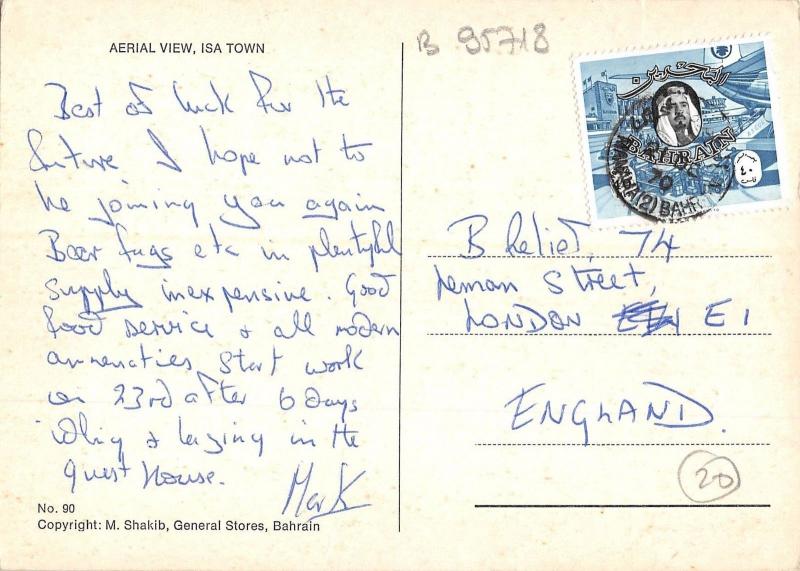 AERIAL VIEW, ISA TOWN
Best of luck for the
future I hope not to
be joining you again
Beer fags etc in plentyful
supply inexpensive. Good
food service & all modern
ammenaties start work
on 23rd after 6 days
idling & lazing in the
guest house.
Mark
No. 90
Copyright: M. Shakib, General Stores, Bahrain
B 95718
البحرين
BAHRAIN
٤٠
70
(2) BAHR
B Relief, 74
Leman Street,
LONDON E1
ENGLAND.
20